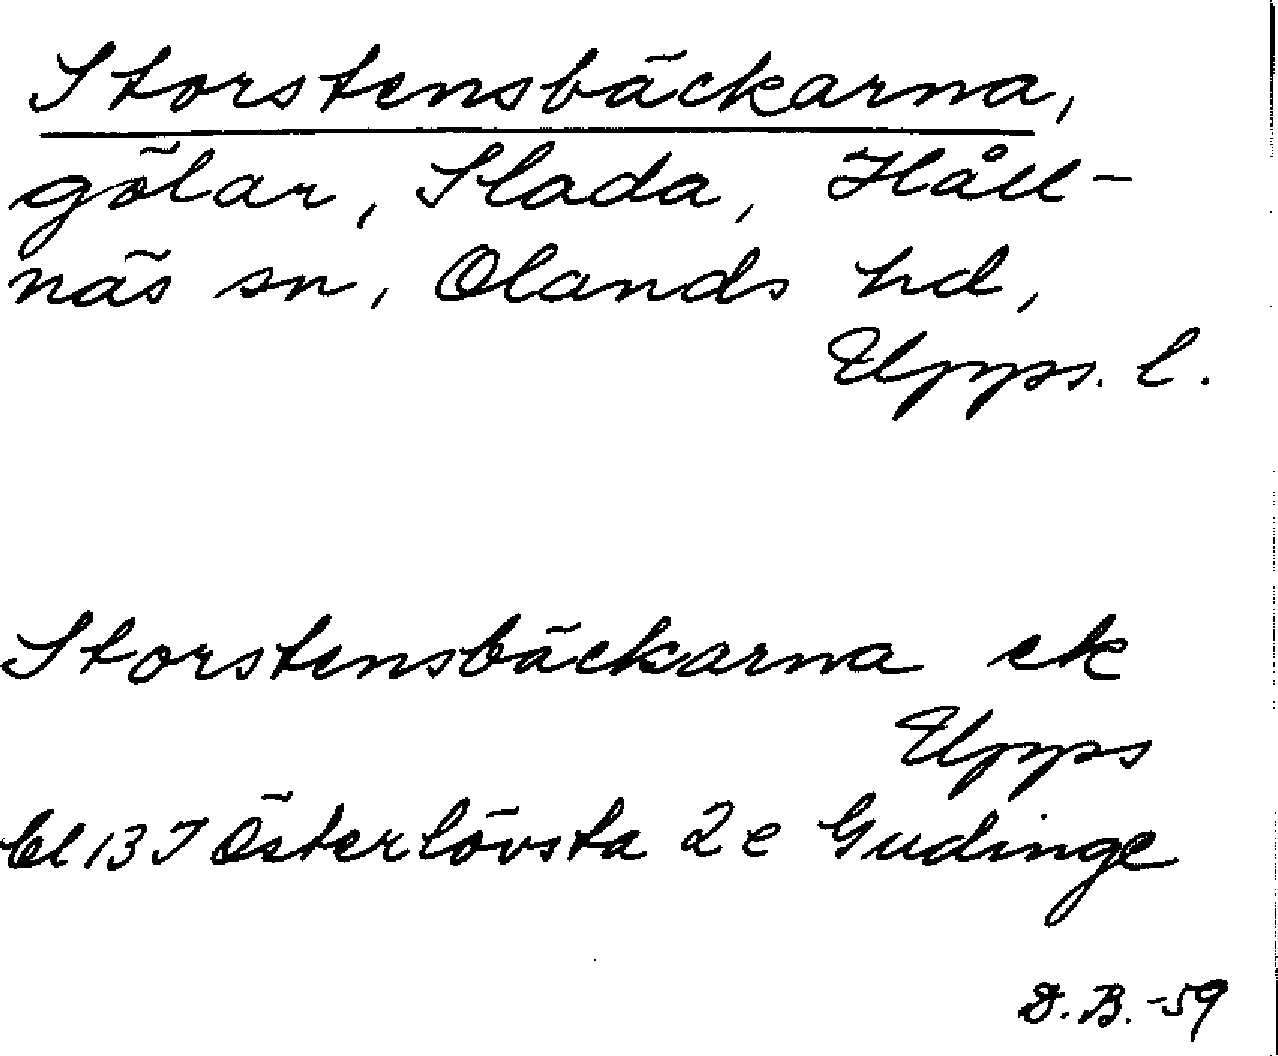 Storstensbäckarna,
gölar, Slada, Håll-
näs sn, Olands hd,
Upps. l.
Storstensbäckarna ek
Upps
bl 13 I Österlövsta 2 e Gudinge
D. B. -59